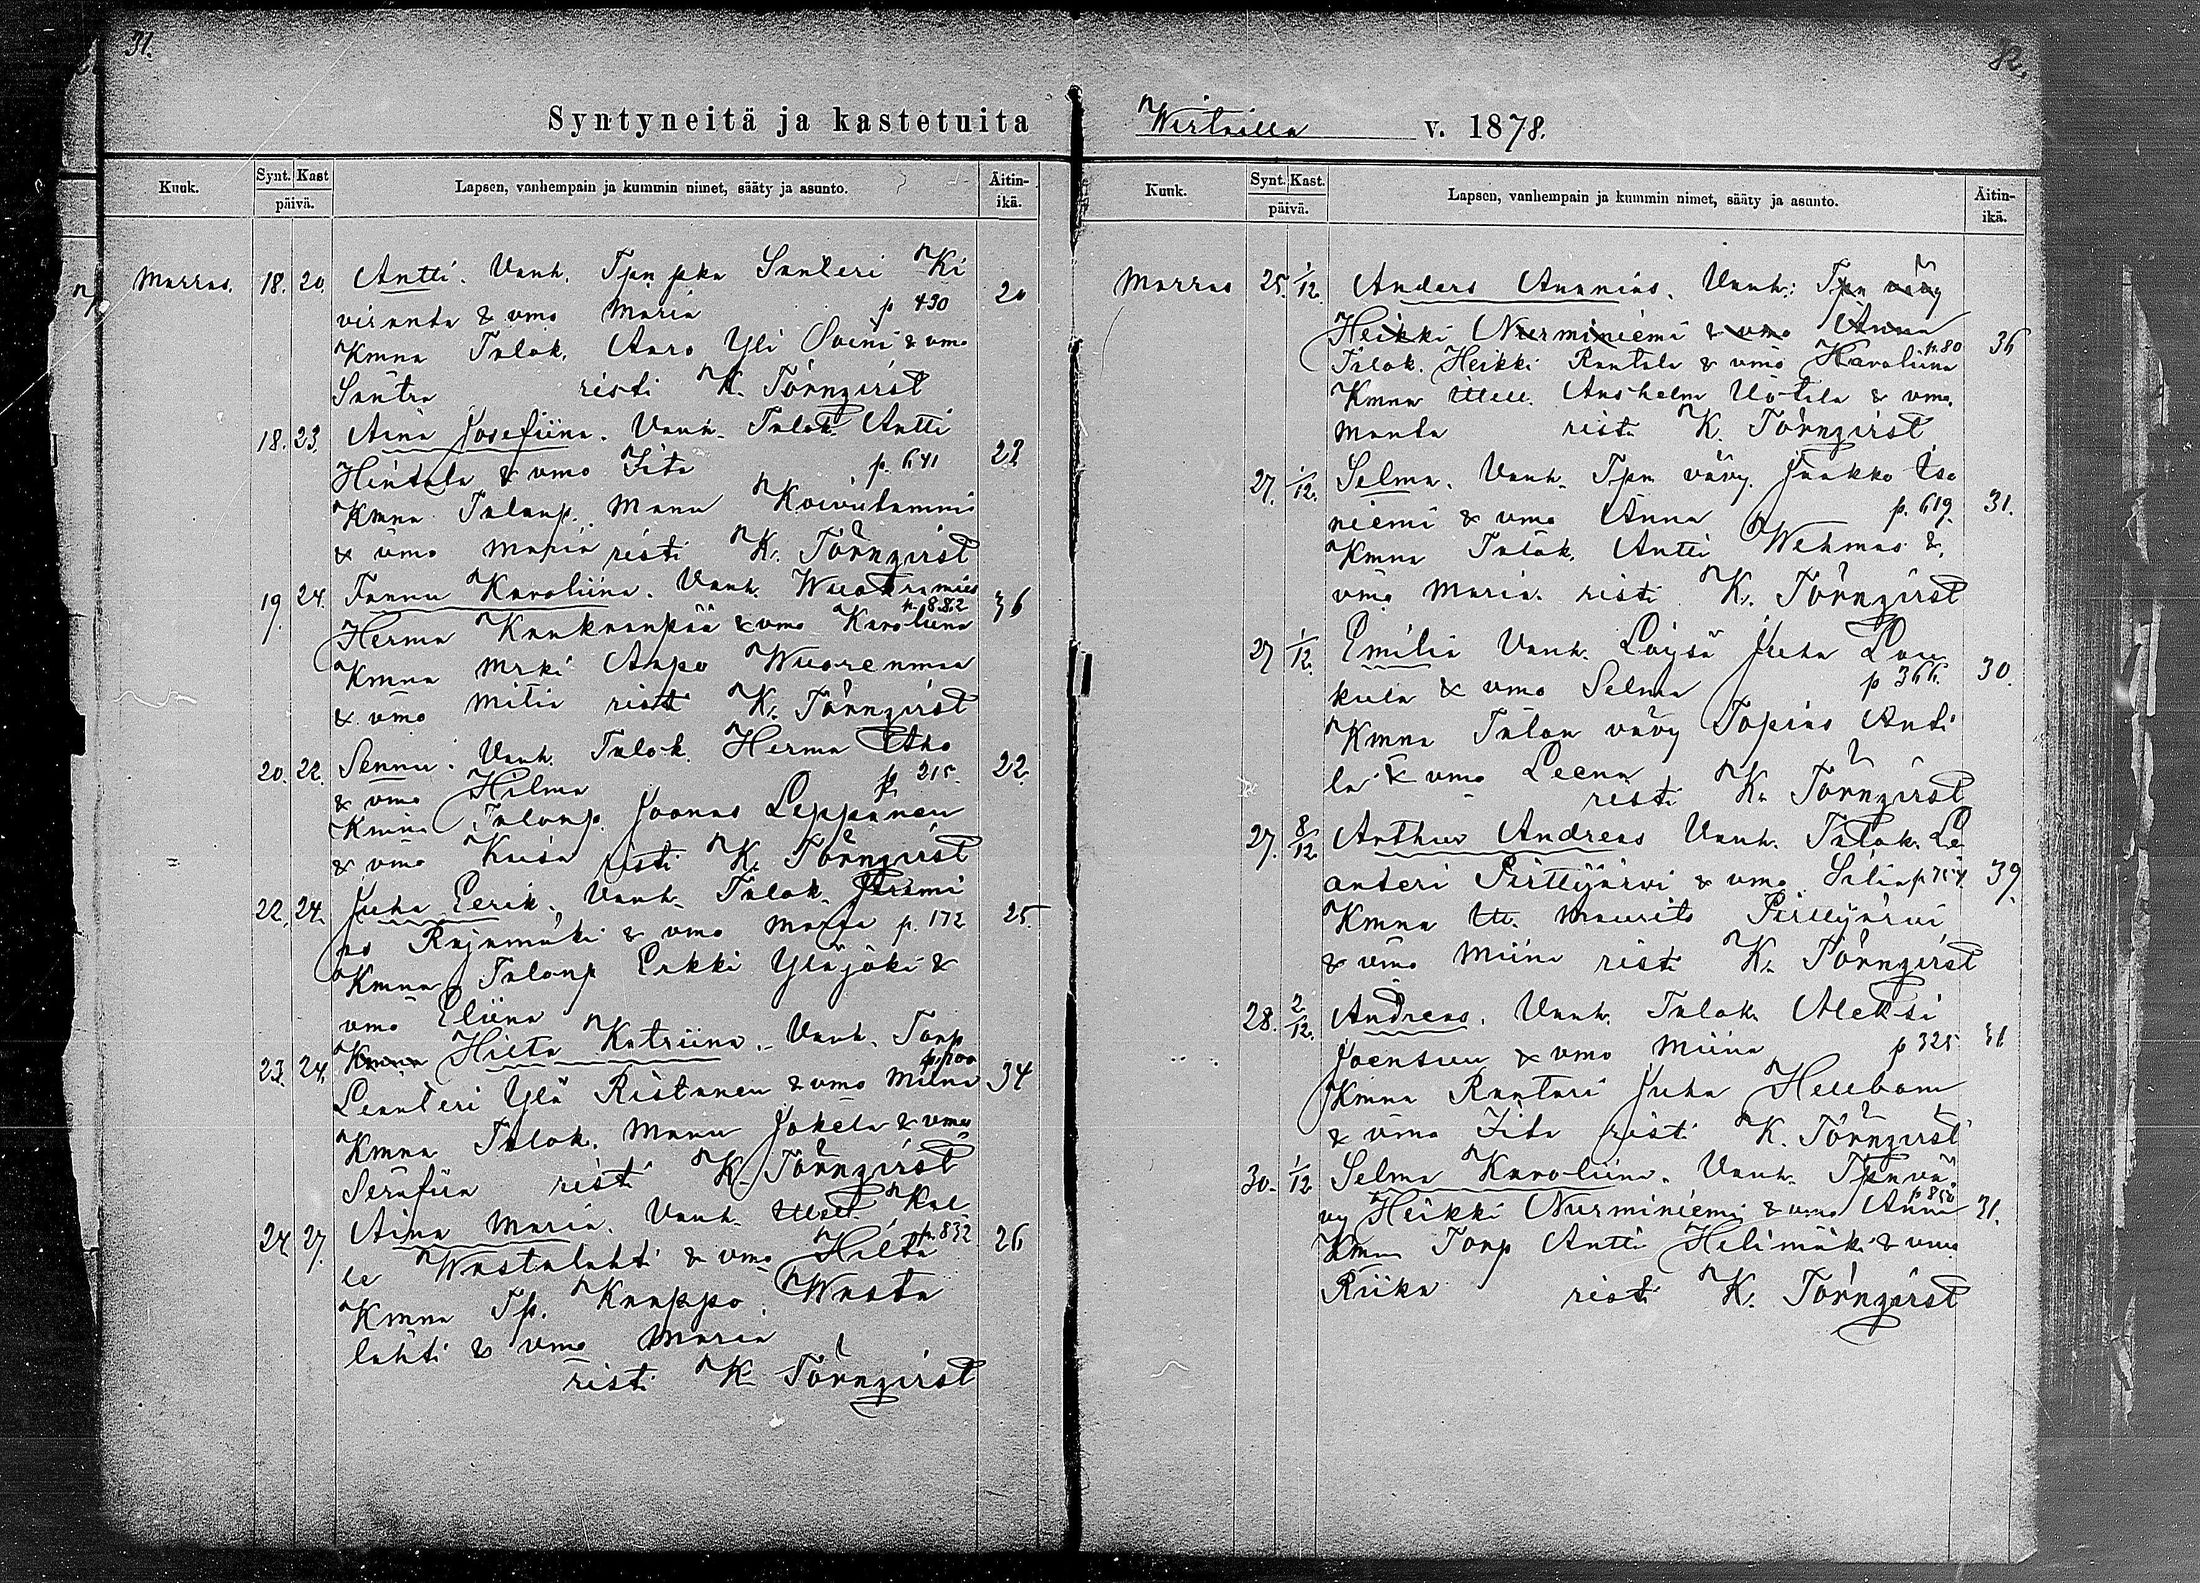 31.
Syntyneitä ja kastetuita
Kuuk.
Synt. Kast
päivä.
Lapsen, vanhempain ja kummin nimet, sääty ja asunto.
Äitin-
ikä.
Marras. 18. 20. Antti. Vanh. Tpn pka Santeri Ki
viranta & vmo Maria p 430 20
Kmna Talok. Aaro Yli Soini & vmo
Santra risti K. Törnqvist
18. 23. Aina Josefiina. Vanh. Talok. Antti
Hintala & vmo Fita p. 641 22
Kmna Talonp. Manu Koivulammi
& vmo Maria risti K. Törnqvist
19. 24. Fannu Karoliina. Vanh. Wuokramies
Herma Kankaanpää & vmo Karoliina p. 882 36
Kmna Mrki Aapo Wuorenmaa
& vmo Milia risti K. Törnqvist
20. 22. Sennu. Vanh. Talok. Herma Aho
& vmo Hilma p. 215. 22.
Kmna Talonp. Joonas Leppänen
& vmo Kaisa risti K. Törnqvist
22. 24. Juha Eerik. Vanh. Talok. Jeremi
as Rajamäki & vmo Maria p. 172 25.
Kmna Talonp Erkki Yläjoki &
vmo Eliina
23. 24. Kmna Hilta Katriina. Vanh. Torp
Leanteri Ylä Ristanen & vmo Miina p 700 34
Kmna Talok. Manu Jokela & vmo
Serafiia risti K. Törnqvist
24. 27. Aina Maria. Vanh. Kal
le Wastalahti & vmo Hilta p. 832 26
Kmna Tp. Kaappo Wasta
lahti & vmo Maria
risti K. Törnqvist
32.
Wirtailla v. 1878.
Kuuk.
Synt. Kast.
päivä.
Lapsen, vanhempain ja kummin nimet, sääty ja asunto.
Äitin-
ikä.
Marras 25. 1/12. Anders Ananias. Vanh: Tpn vävy
Heikki Nurminiemi & vmo Anna
Talok. Heikki Rantala & vmo Karoliina p. 80 36
Kmna Anshelm Uotila & vmo.
Manta risti K. Törnqvist
27. 1/12. Selma. Vanh. Tpn vävy. Jaakko Iso
niemi & vmo Anna p. 619. 31.
Kmna Talok. Antti Wehmas &
vmo Maria. risti K. Törnqvist
27 1/12. Emilia Vanh. Loysä Juha Lou
kula & vmo Selma p 366. 30.
Kmna Talon vävy Topias Anti
la & vmo Leena
risti K. Törnqvist
27. 8/12. Arthur Andreas Vanh. Talok. Le
anteri Pirttijärvi & vmo Silia p 754 39.
Kmna Maurits Pirttijärvi
& vmo Miina risti K. Törnqvist
28. 2/12. Andreas. Vanh. Talok. Aleksi
Joensuu & vmo Miina p 325 31
Kmna Räätäri Juha Hellbom
& vmo Fita risti K. Törnqvist
30. 1/12 Selma Karoliina. Vanh. Tpn vä
vy Heikki Nurminiemi & vmo Anna p 850 31.
Kmna Torp Antti Helimäki & vmo
Riika risti K. Törnqvist